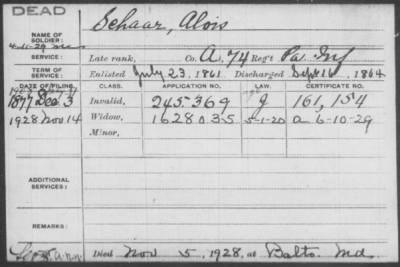 DEAD
NAME OF SOLDIER: Schaar, Alois
SERVICE: Late rank, Co. A, 74 Reg't Pa. Inf
TERM OF SERVICE: Enlisted July 23, 1861 Discharged Sept 16, 1864
DATE OF FILING. CLASS. APPLICATION NO. CERTIFICATE NO.
1877 Dec. 3 Invalid, 245.369 161,154
1928 Nov 14 Widow, 1628035 5-1-20 a 6-10-29
Minor,
ADDITIONAL SERVICES:
REMARKS:
Died Nov 5, 1928, at Balto. Md.